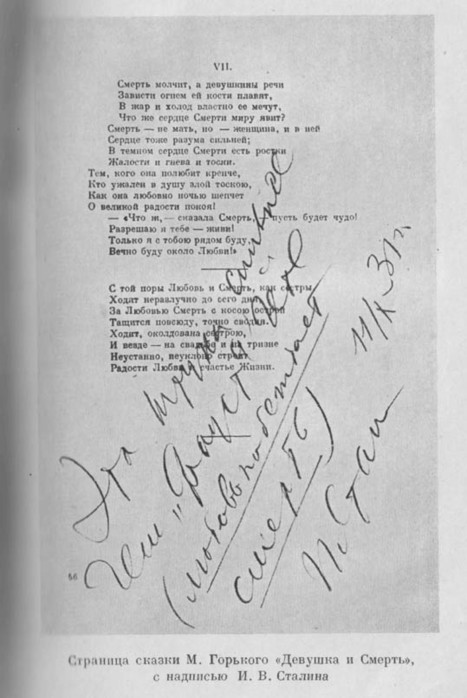 VII.
Смерть молчит, а девушкины речи
Зависти огнем ей кости плавят,
В жар и холод властно ее мечут,
Что же сердце Смерти миру явит?
Смерть — не мать, но — женщина, и в ней
Сердце тоже разума сильней;
В темном сердце Смерти есть ростки
Жалости и гнева и тоски.
Тем, кого она полюбит крепче,
Кто ужален в душу злой тоскою,
Как она любовно ночью шепчет
О великой радости покоя!
— «Что ж, — сказала Смерть, — пусть будет чудо!
Разрешаю я тебе — живи!
Только я с тобою рядом буду,
Вечно буду около Любви!»
С той поры Любовь и Смерть, как сестры,
Ходят неразлучно до сего дня,
За Любовью Смерть с косою острой
Тащится повсюду, точно сводня.
Ходит, околдована сестрою,
И везде — на свадьбе и на тризне
Неустанно, неуклонно строит
Радости Любви и счастье Жизни.
Эта штука сильнее
чем „Фауст" Гете
(любовь побеждает
смерть)
И. Стали
11/X–31г.
Страница сказки М. Горького «Девушка и Смерть»,
с надписью И. В. Сталина